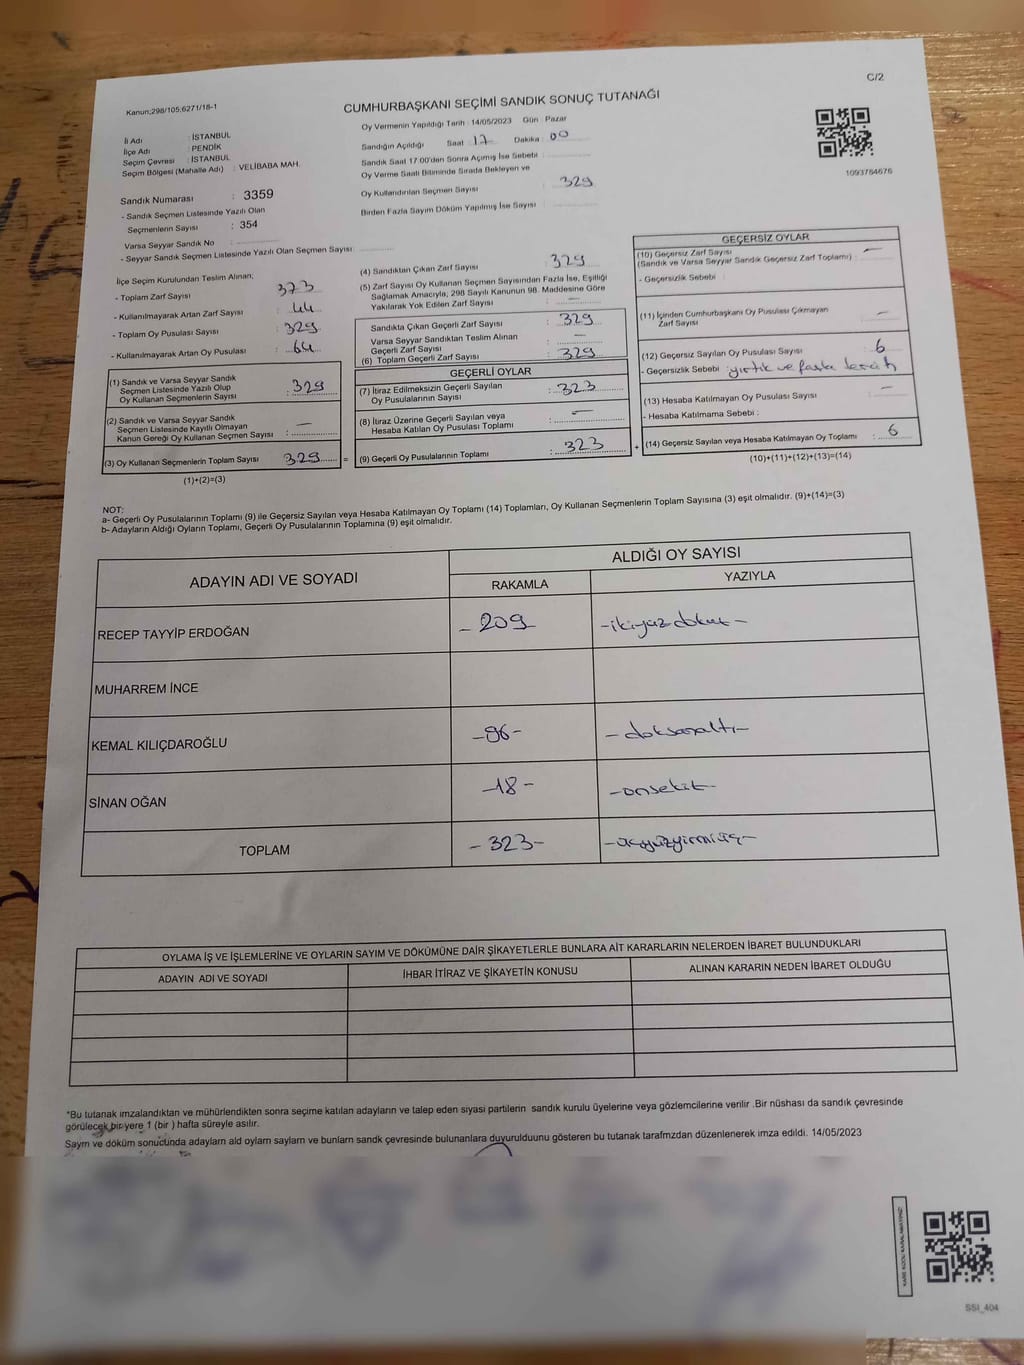 C/2
Kanun;298/105,6271/18-1
CUMHURBAŞKANI SEÇİMİ SANDIK SONUÇ TUTANAĞI
İl Adı : İSTANBUL
İlçe Adı : PENDİK
Seçim Çevresi : İSTANBUL
Seçim Bölgesi (Mahalle Adı) : VELİBABA MAH.
Sandık Numarası : 3359
- Sandık Seçmen Listesinde Yazılı Olan
Seçmenlerin Sayısı : 354
Varsa Seyyar Sandık No :
- Seyyar Sandık Seçmen Listesinde Yazılı Olan Seçmen Sayısı:
Oy Vermenin Yapıldığı Tarih : 14/05/2023 Gün : Pazar
Sandığın Açıldığı Saat : 17 Dakika : 00
Sandık Saat 17.00'den Sonra Açılmış İse Sebebi :
Oy Verme Saati Bitiminde Sırada Bekleyen ve
Oy Kullandırılan Seçmen Sayısı : 329
Birden Fazla Sayım Döküm Yapılmış İse Sayısı :
1093784676
İlçe Seçim Kurulundan Teslim Alınan;
- Toplam Zarf Sayısı : 373
- Kullanılmayarak Artan Zarf Sayısı : 44
- Toplam Oy Pusulası Sayısı : 329
- Kullanılmayarak Artan Oy Pusulası : 64
(1) Sandık ve Varsa Seyyar Sandık
Seçmen Listesinde Yazılı Olup
Oy Kullanan Seçmenlerin Sayısı : 329
(2) Sandık ve Varsa Seyyar Sandık
Seçmen Listesinde Kayıtlı Olmayan
Kanun Gereği Oy Kullanan Seçmen Sayısı : —
(3) Oy Kullanan Seçmenlerin Toplam Sayısı : 329
(1)+(2)=(3)
(4) Sandıktan Çıkan Zarf Sayısı : 329
(5) Zarf Sayısı Oy Kullanan Seçmen Sayısından Fazla İse, Eşitliği
Sağlamak Amacıyla, 298 Sayılı Kanunun 98. Maddesine Göre
Yakılarak Yok Edilen Zarf Sayısı : —
Sandıkta Çıkan Geçerli Zarf Sayısı : 329
Varsa Seyyar Sandıktan Teslim Alınan
Geçerli Zarf Sayısı : —
(6) Toplam Geçerli Zarf Sayısı : 329
GEÇERLİ OYLAR
(7) İtiraz Edilmeksizin Geçerli Sayılan
Oy Pusulalarının Sayısı : 323
(8) İtiraz Üzerine Geçerli Sayılan veya
Hesaba Katılan Oy Pusulası Toplamı : —
(9) Geçerli Oy Pusulalarının Toplamı : 323
GEÇERSİZ OYLAR
(10) Geçersiz Zarf Sayısı
(Sandık ve Varsa Seyyar Sandık Geçersiz Zarf Toplamı) : —
- Geçersizlik Sebebi :
(11) İçinden Cumhurbaşkanı Oy Pusulası Çıkmayan
Zarf Sayısı : —
(12) Geçersiz Sayılan Oy Pusulası Sayısı : 6
- Geçersizlik Sebebi : yırtık ve fazla
(13) Hesaba Katılmayan Oy Pusulası Sayısı : —
- Hesaba Katılmama Sebebi :
(14) Geçersiz Sayılan veya Hesaba Katılmayan Oy Toplamı : 6
(10)+(11)+(12)+(13)=(14)
NOT:
a- Geçerli Oy Pusulalarının Toplamı (9) ile Geçersiz Sayılan veya Hesaba Katılmayan Oy Toplamı (14) Toplamları, Oy Kullanan Seçmenlerin Toplam Sayısına (3) eşit olmalıdır. (9)+(14)=(3)
b- Adayların Aldığı Oyların Toplamı, Geçerli Oy Pusulalarının Toplamına (9) eşit olmalıdır.
ADAYIN ADI VE SOYADI
ALDIĞI OY SAYISI
RAKAMLA YAZIYLA
RECEP TAYYİP ERDOĞAN - 209 -ikiyüzdokuz-
MUHARREM İNCE
KEMAL KILIÇDAROĞLU -96- -doksanaltı-
SİNAN OĞAN -18- -onsekiz-
TOPLAM -323- -üçyüzyirmiüç-
OYLAMA İŞ VE İŞLEMLERİNE VE OYLARIN SAYIM VE DÖKÜMÜNE DAİR ŞİKAYETLERLE BUNLARA AİT KARARLARIN NELERDEN İBARET BULUNDUKLARI
ADAYIN ADI VE SOYADI İHBAR İTİRAZ VE ŞİKAYETİN KONUSU ALINAN KARARIN NEDEN İBARET OLDUĞU
*Bu tutanak imzalandıktan ve mühürlendikten sonra seçime katılan adayların ve talep eden siyasi partilerin sandık kurulu üyelerine veya gözlemcilerine verilir .Bir nüshası da sandık çevresinde
görülecek bir yere 1 (bir ) hafta süreyle asılır.
Sayım ve döküm sonucunda adayların ald oyların sayların ve bunların sandk çevresinde bulunanlara duyurulduunu gösteren bu tutanak tarafmzdan düzenlenerek imza edildi. 14/05/2023
SSI_404